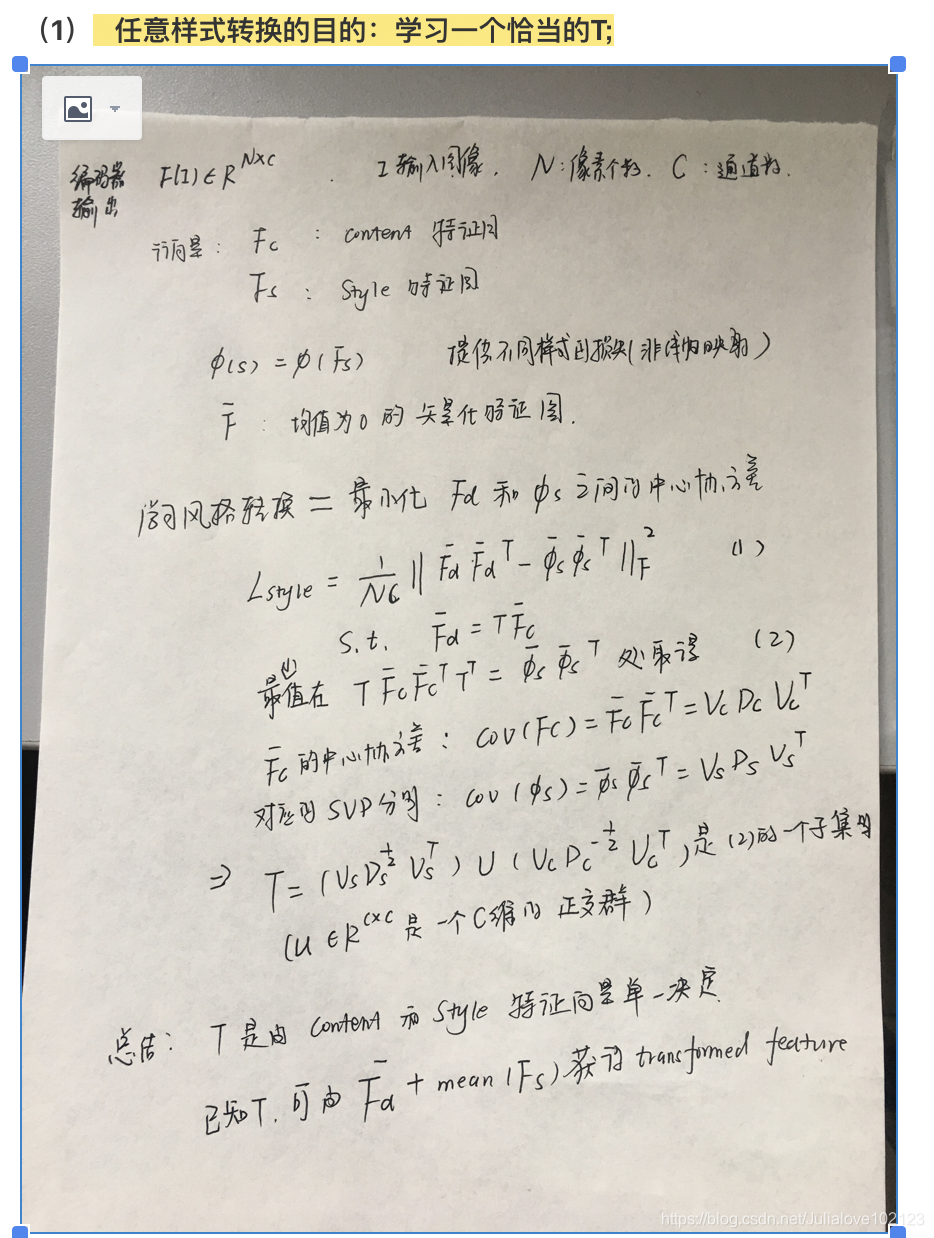 （1） 任意样式转换的目的：学习一个恰当的T;
编码器 F(I)∈R^{N×C} . I输入图像. N:像素个数. C:通道数.
输出
向量: Fc : content 特征图
Fs : Style 特征图
φ(s) = φ(F̄s) 提供不同样式的损失(非线性映射)
F̄ : 均值为0的矢量化特征图.
学习风格转换 = 最小化 Fd 和 φs 之间的中心协方差
Lstyle = 1/NC ‖F̄d F̄d^T − φ̄s φ̄s^T‖_F^2 (1)
s.t. F̄d = TF̄c
最小值在 T F̄c F̄c^T T^T = φ̄s φ̄s^T 处取得 (2)
F̄c 的中心协方差: cov(Fc) = F̄c F̄c^T = Vc Dc Vc^T
对应的 SVD分别: cov(φs) = φ̄s φ̄s^T = Vs Ds Vs^T
⇒ T = (Vs Ds^{1/2} Vs^T) U (Vc Dc^{-1/2} Vc^T) 是(2)的一个子集
(U ∈ R^{C×C} 是一个C维的 正交群)
总结: T是由 content 和 style 特征向量单一决定.
已知T. 可由 F̄d + mean(Fs) 获得 transformed feature
https://blog.csdn.net/Julialove102123